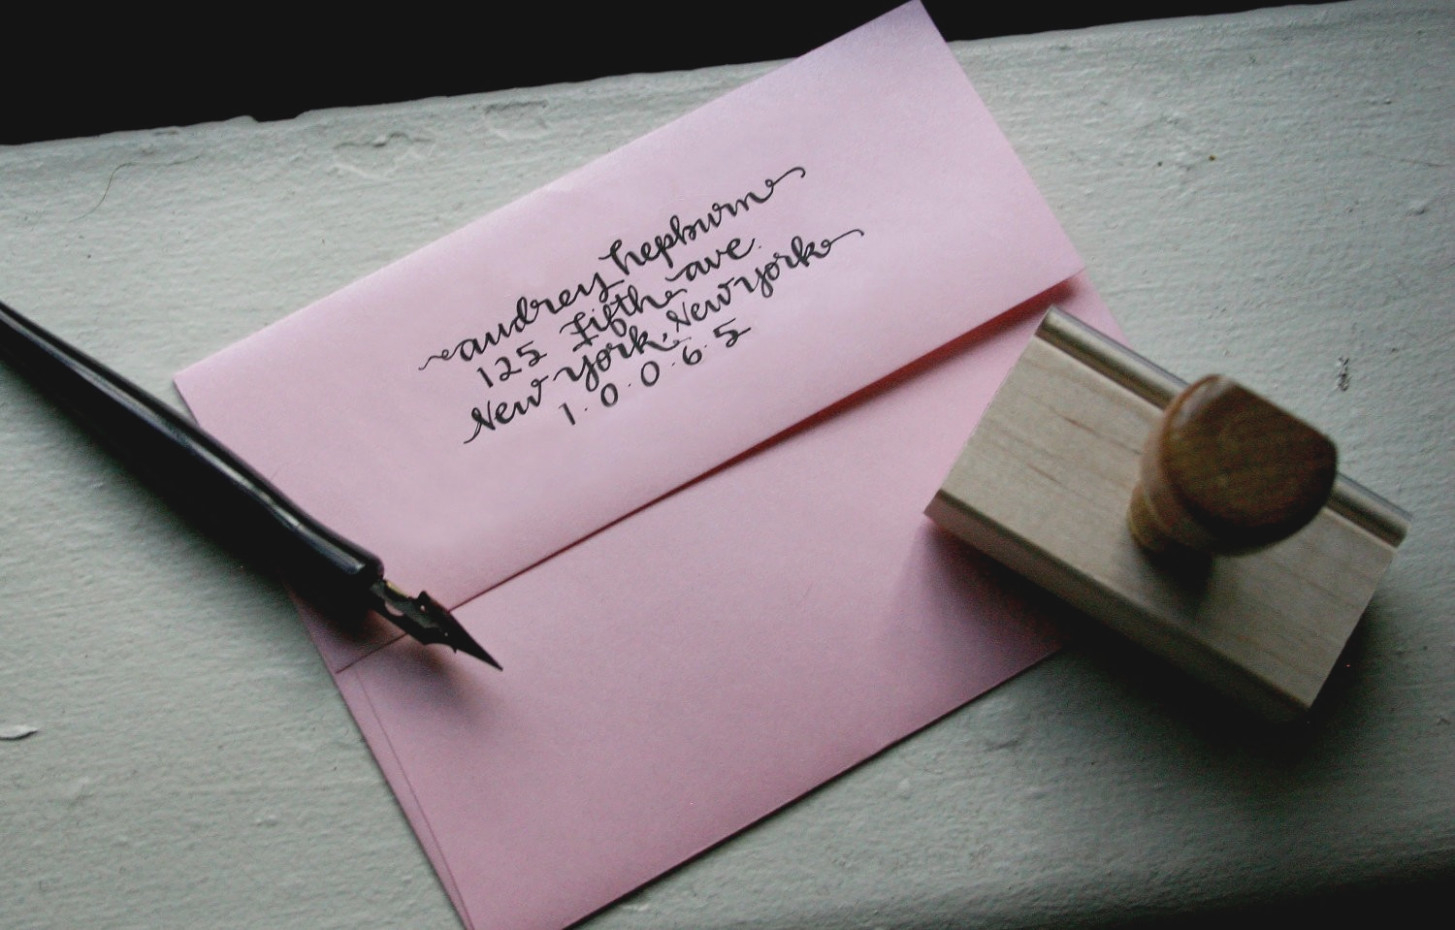 audrey hepburn
125 Fifth ave.
New york, New york
1.0.0.6.5